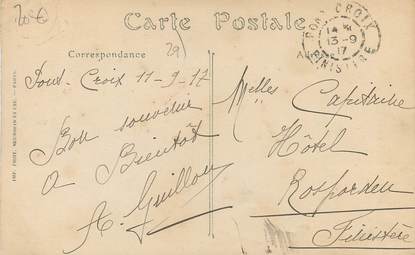 20€
Carte Postale
Correspondance
29
PONT-CROIX
14 H
13-9
17
FINISTÈRE
Pont-Croix 11-9-17
Bon souvenir
a Bientôt
A. Guillou
Melles Capitaine
Hôtel
Rosporden
Finistère